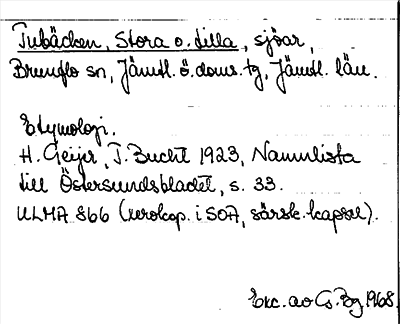 Tubäcken, Stora o. Lilla, sjöar,
Brunflo sn, Jämtl. ö. doms. tg, Jämtl. län.
Etymologi.
H. Geijer, T. Bucht 1923, Namnlista
till Östersundsbladet, s. 33.
ULMA 866 (xerokop. i SOA, särsk. kapsel).
Exc. av G. Bg 1968.